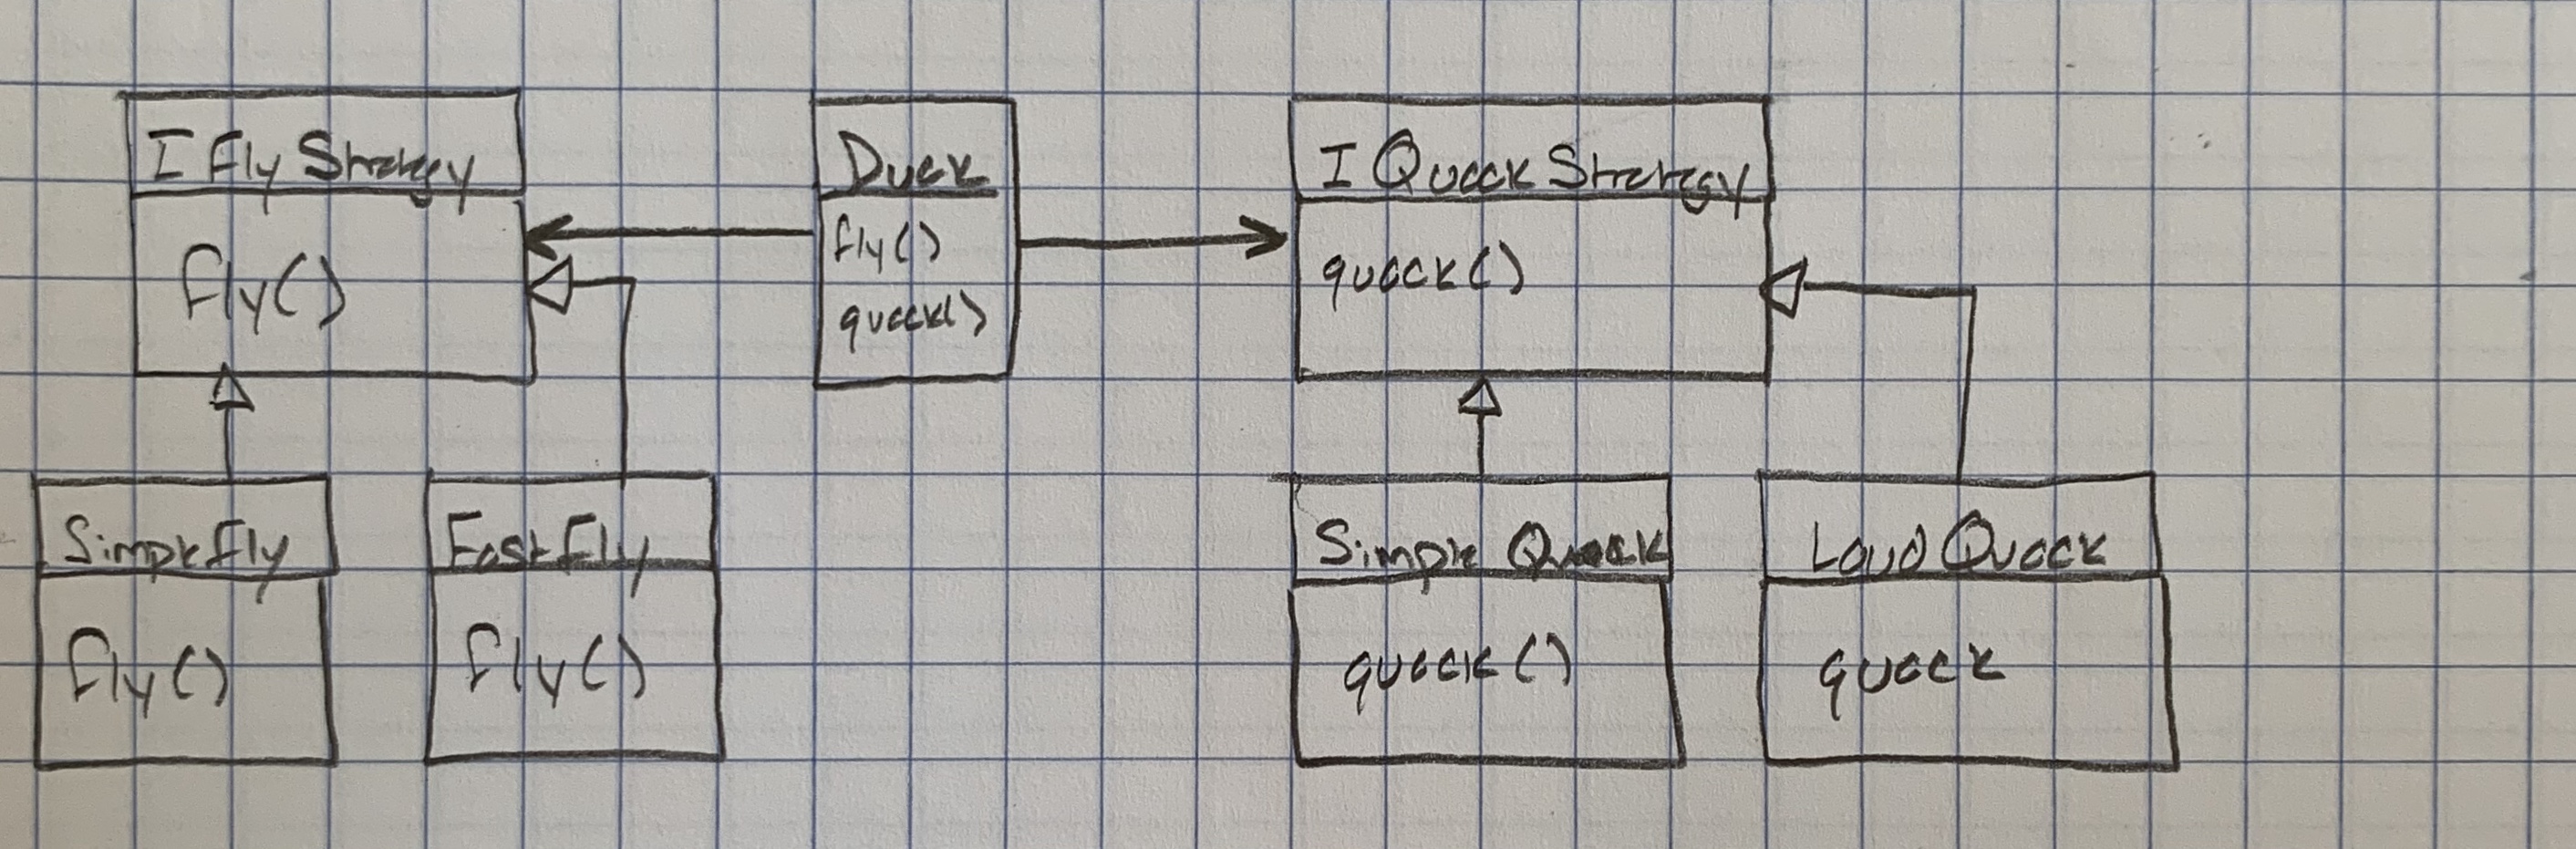 I Fly Strategy
fly()
Duck
fly()
quack()
I Quack Strategy
quack()
Simple Fly
fly()
Fast Fly
fly()
Simple Quack
quack()
Loud Quack
quack